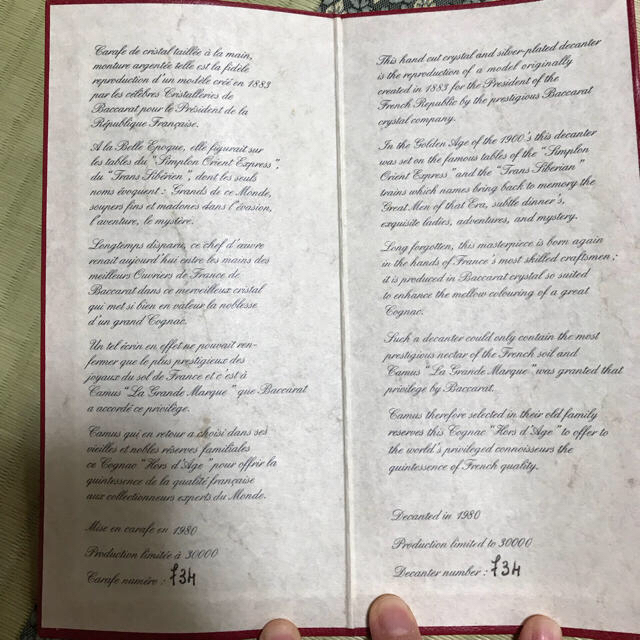 Carafe de cristal taillée à la main,
monture argentée telle est la fidèle
reproduction d'un modèle créé en 1883
par les célèbres Cristalleries de
Baccarat pour le Président de la
République Française.
A la Belle Epoque, elle figurait sur
les tables du "Simplon Orient Express",
du "Trans Sibérien", dont les seuls
noms évoquent : Grands de ce Monde,
soupers fins et madones dans l'évasion,
l'aventure, le mystère.
Longtemps disparu, ce chef d'œuvre
renait aujourd'hui entre les mains des
meilleurs Ouvriers de France de
Baccarat dans ce merveilleux cristal
qui met si bien en valeur la noblesse
d'un grand Cognac.
Un tel écrin en effet ne pouvait ren-
fermer que le plus prestigieux des
joyaux du sol de France et c'est à
Camus "La Grande Marque" que Baccarat
a accordé ce privilège.
Camus qui en retour a choisi dans ses
vieilles et nobles réserves familiales
ce Cognac "Hors d'Age" pour offrir la
quintessence de la qualité française
aux collectionneurs experts du Monde.
Mise en carafe en 1980
Production limitée à 30000
Carafe numéro : 734
This hand cut crystal and silver-plated decanter
is the reproduction of a model originally
created in 1883 for the President of the
French Republic by the prestigious Baccarat
crystal company.
In the Golden Age of the 1900's this decanter
was set on the famous tables of the "Simplon
Orient Express" and the "Trans Siberian"
trains which names bring back to memory the
Great Men of that Era, subtle dinner's,
exquisite ladies, adventures, and mystery.
Long forgotten, this masterpiece is born again
in the hands of France's most skilled craftsmen ;
it is produced in Baccarat crystal so suited
to enhance the mellow colouring of a great
Cognac.
Such a decanter could only contain the most
prestigious nectar of the French soil and
Camus "La Grande Marque" was granted that
privilege by Baccarat.
Camus therefore selected in their old family
reserves this Cognac "Hors d'Age" to offer to
the world's privileged connoisseurs the
quintessence of French quality.
Decanted in 1980
Production limited to 30000
Decanter number : 734